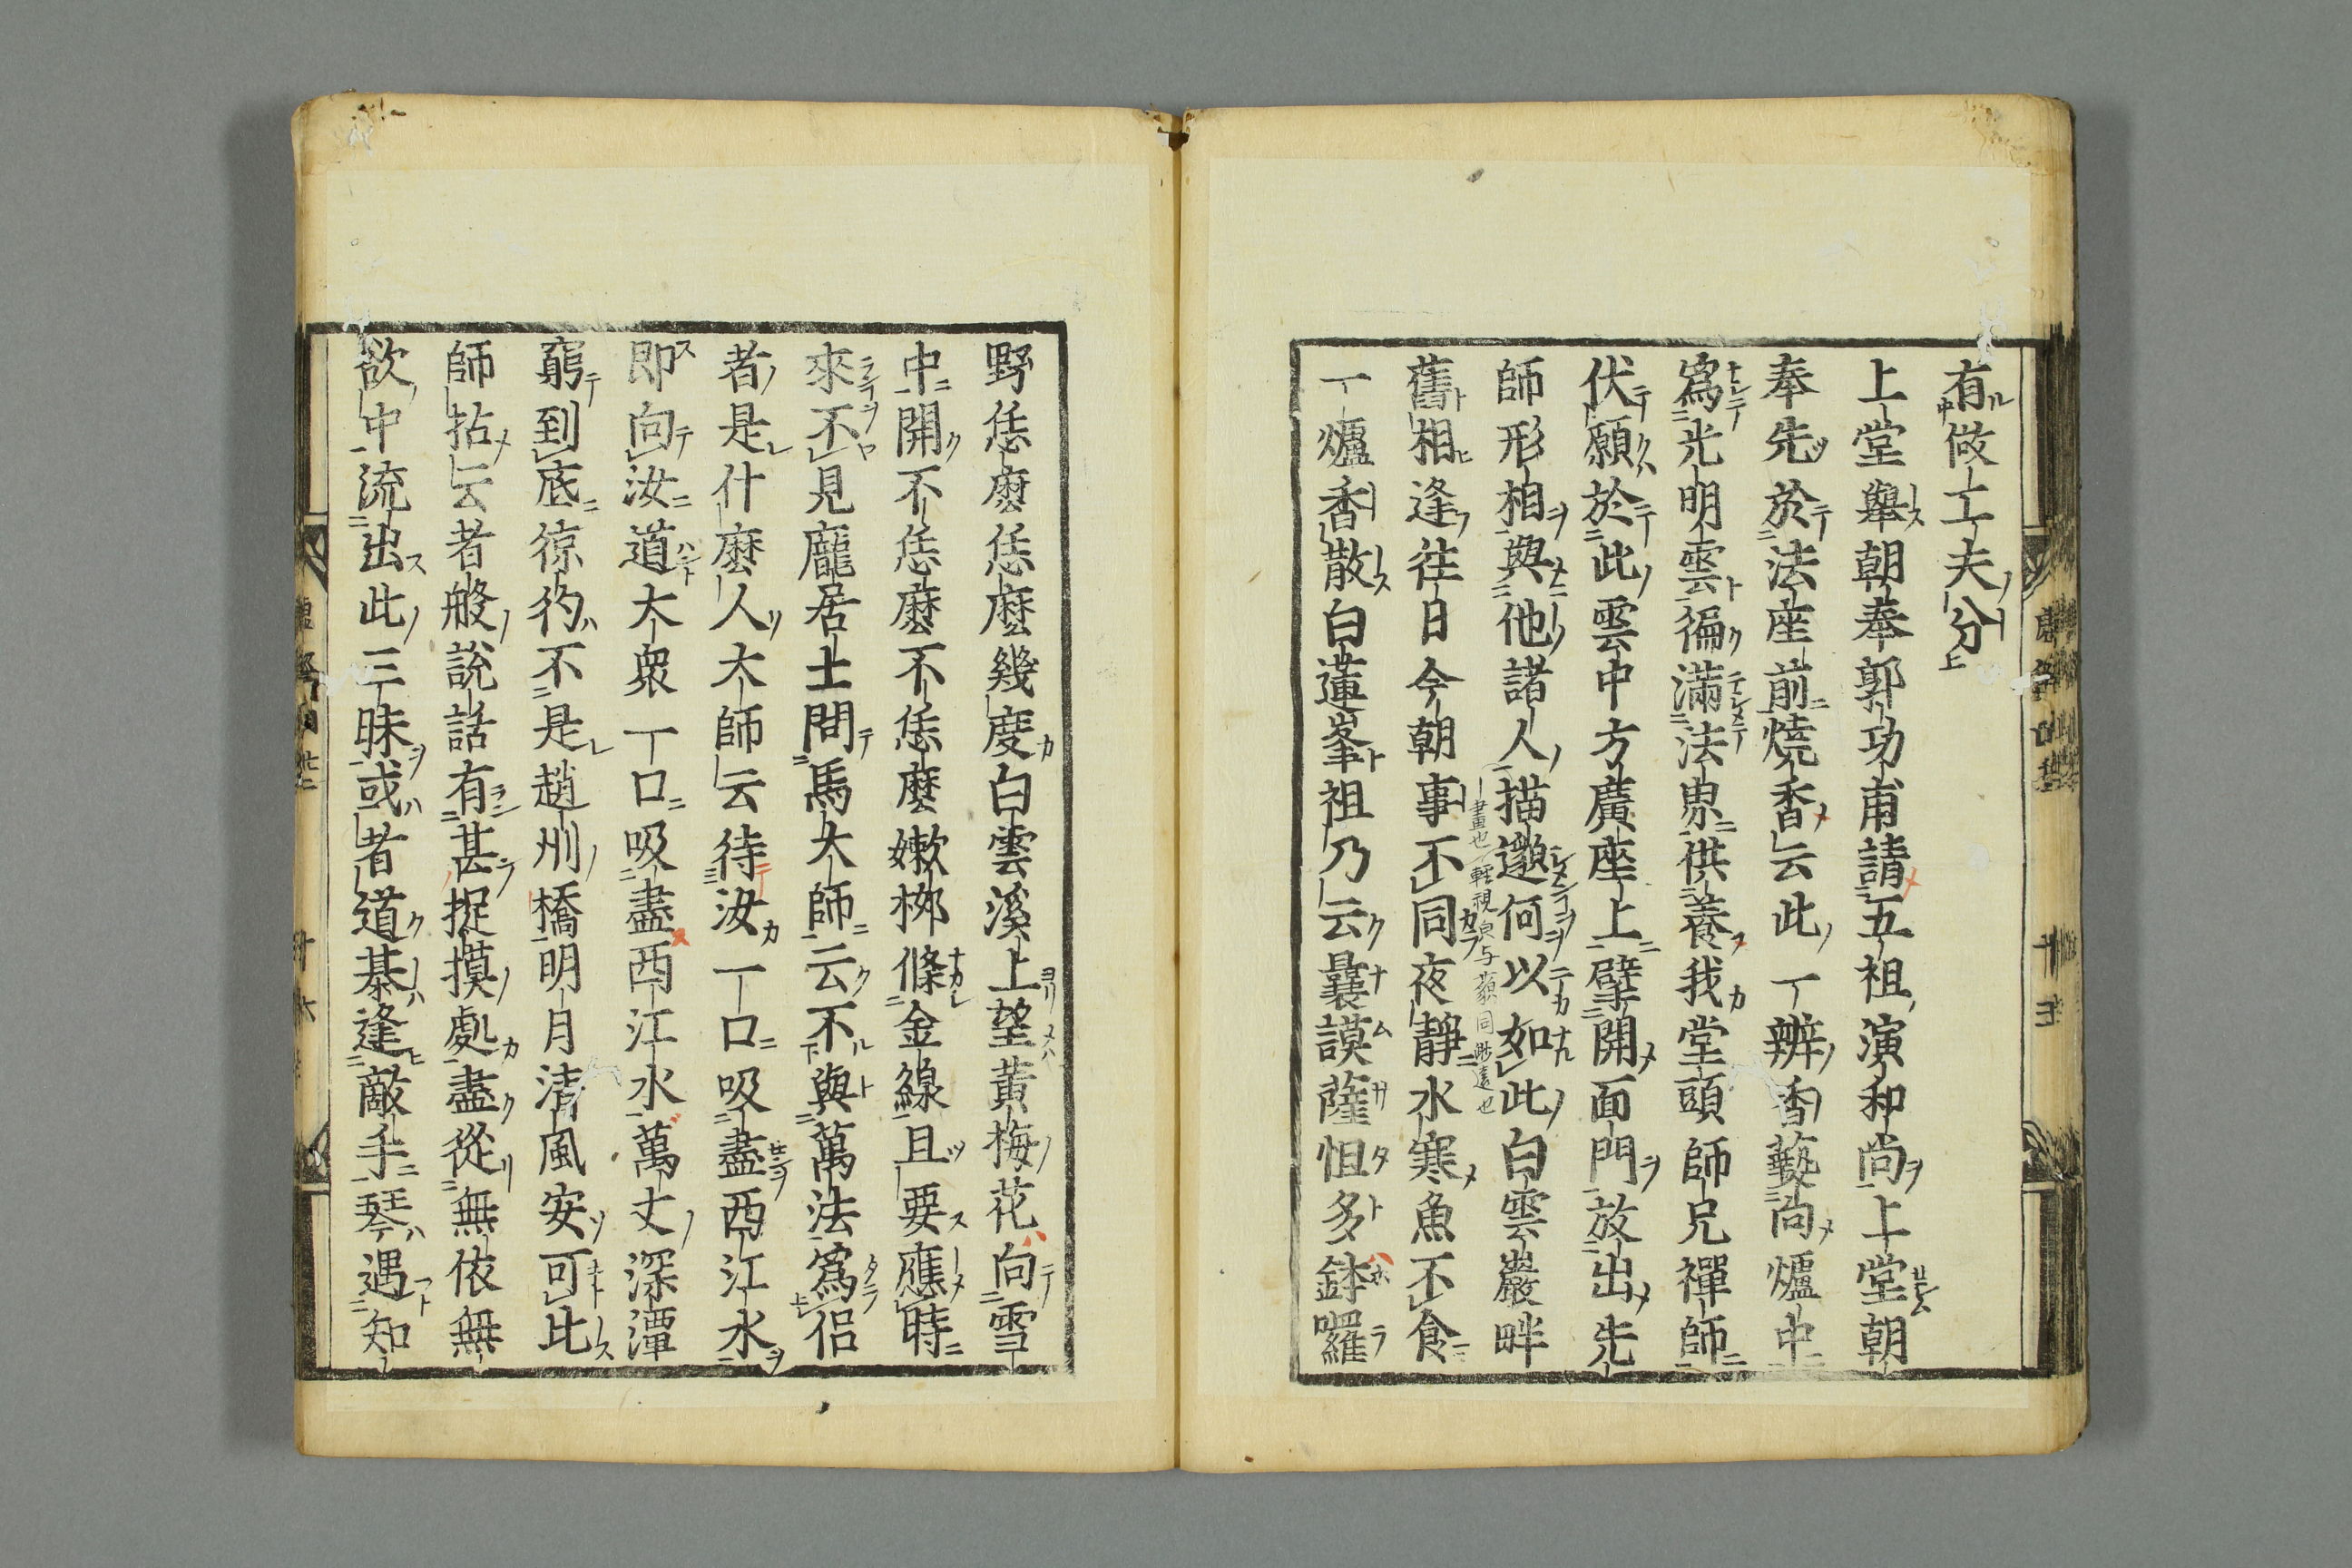 有做工夫分
上堂舉朝奉郭功甫請五祖演和尚上堂朝
奉先於法座前燒香云此一辨香爇向爐中
爲光明雲徧滿法界供養我堂頭師兄禪師
伏願於此雲中方廣座上擘開面門放出先
師形相與他諸人描邈何以如此白雲巖畔
舊相逢往日今朝事不同夜靜水寒魚不食
一爐香散白蓮峯祖乃云曩謨薩怛多鉢囉
野恁麼恁麼幾度白雲溪上望黃梅花向雪
中開不恁麼不恁麼嫰桞條金線且要應時
來不見龐居士問馬大師云不與萬法爲侶
者是什麼人大師云待汝一口吸盡西江水
即向汝道大衆一口吸盡西江水萬丈深潭
窮到底彴不是趙州橋明月清風安可比
師拈云者般說話有甚捉摸處盡從無依無
欲中流出此三昧或者道棊逢敵手琴遇知